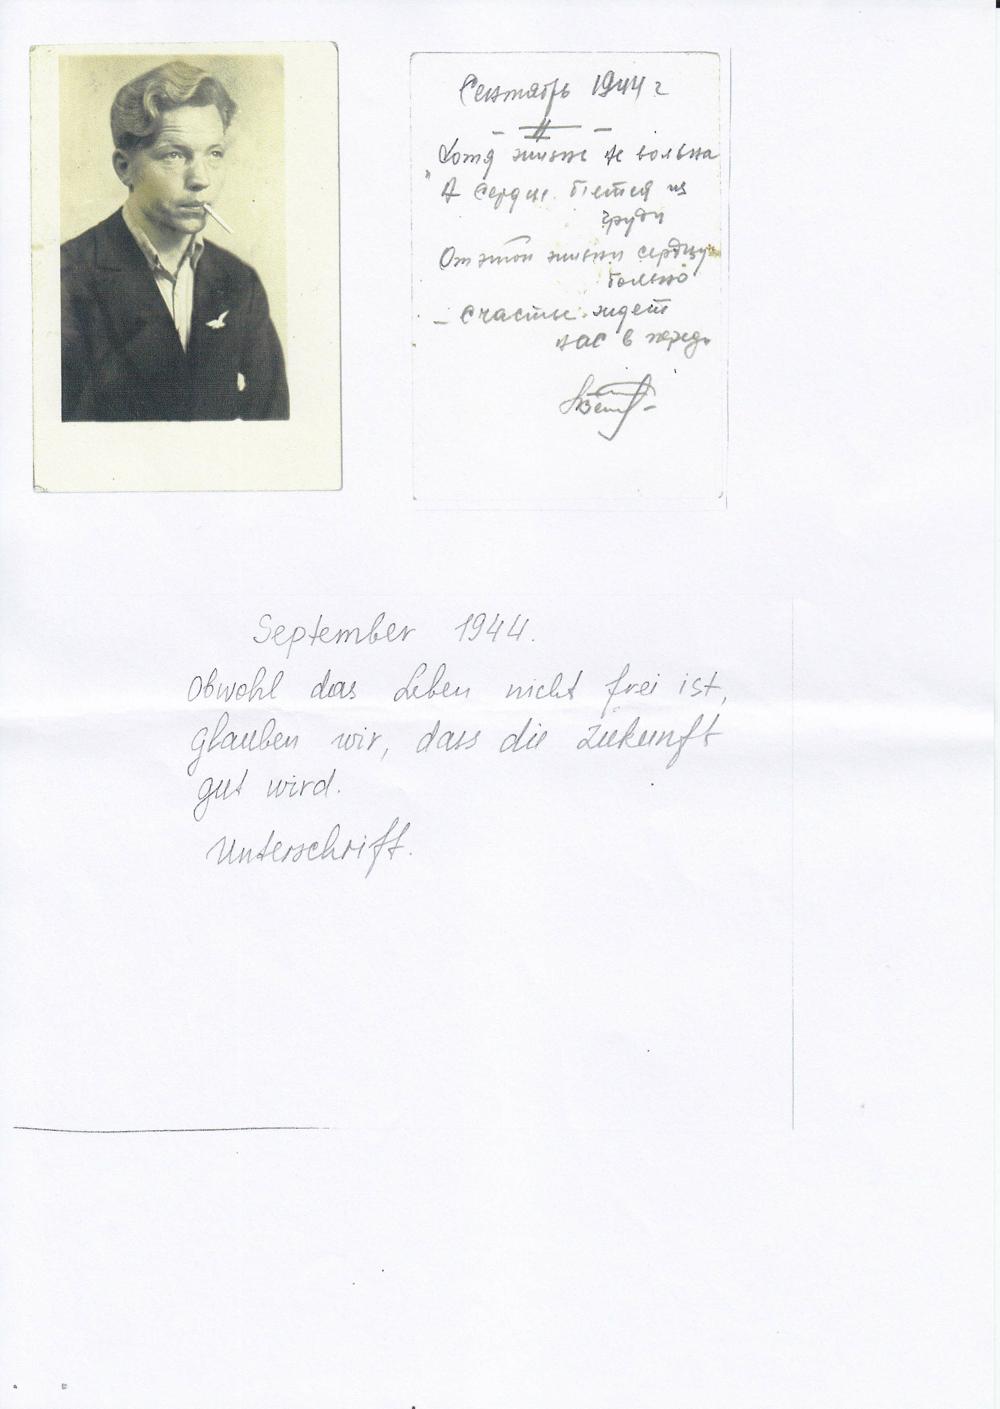 Сентябрь 1944 г
Хотя жизнь не вольна
А сердце бьется из
груди
От этой жизни сердцу
больно
- Счастье ждет
нас в перед.
September 1944.
Obwohl das Leben nicht frei ist,
glauben wir, dass die Zukunft
gut wird.
Unterschrift.